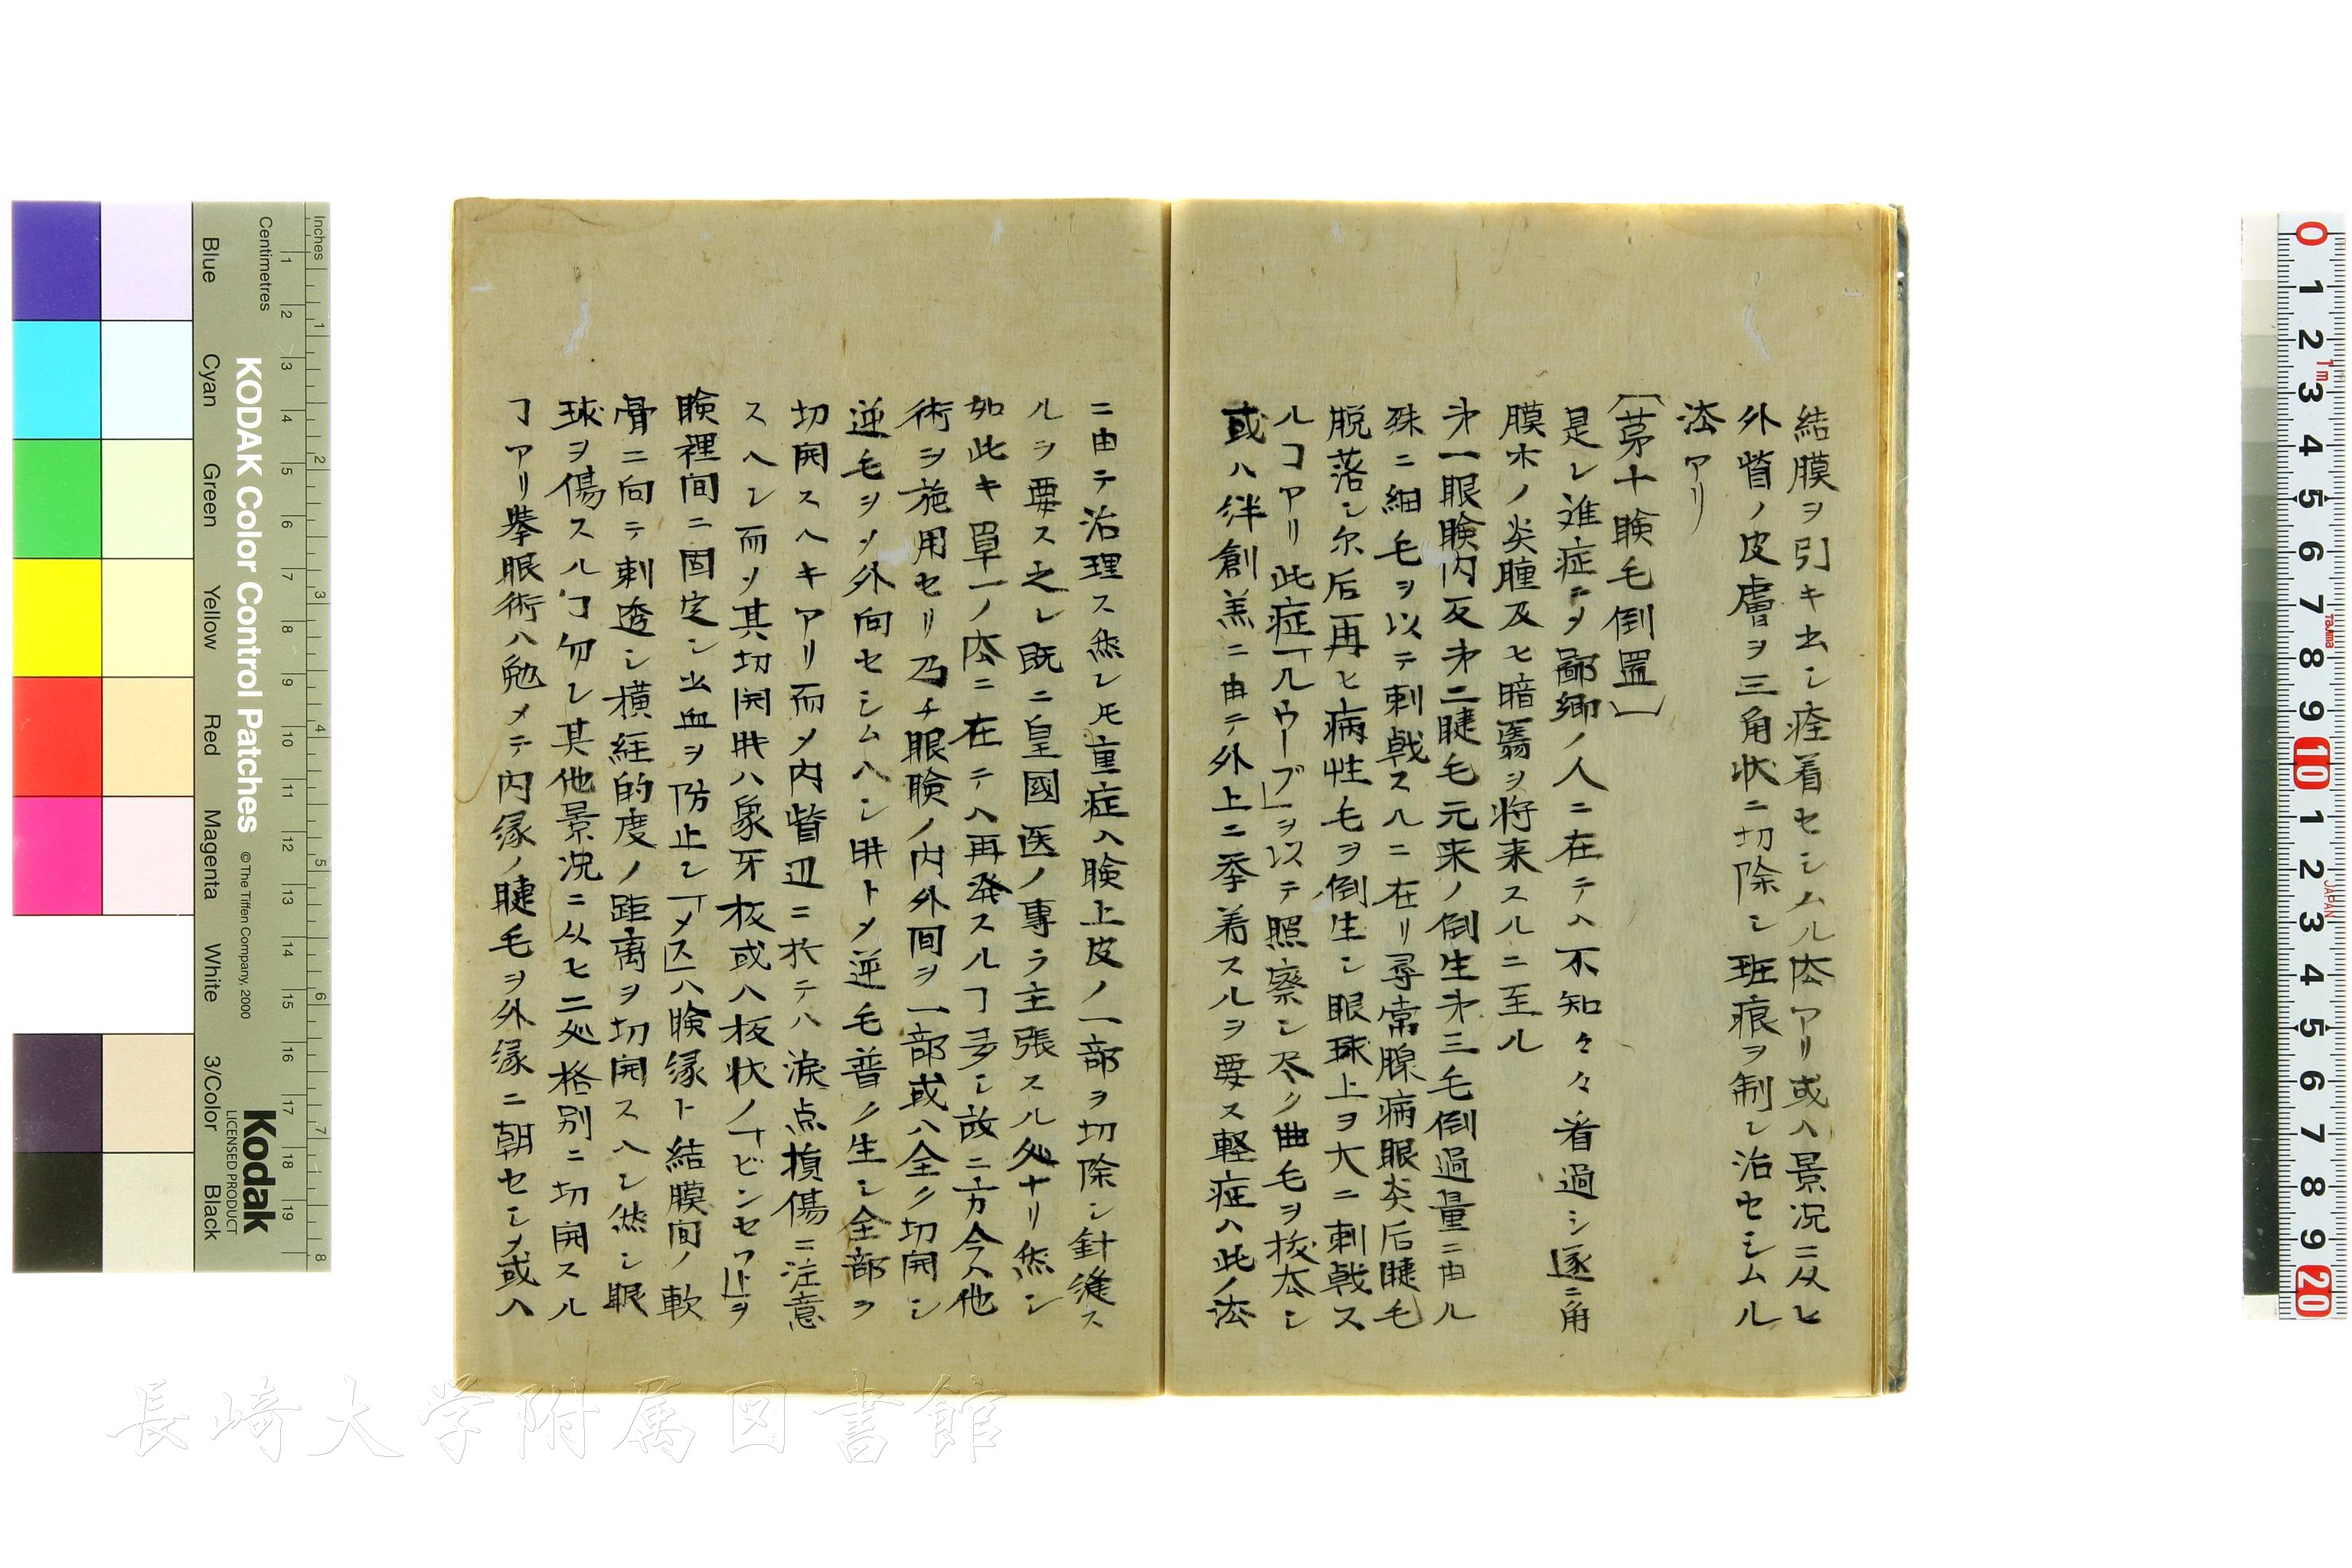 結膜ヲ引キ出シ痊着セシムル㳒アリ或ハ景况ニ从ヒ
外眥ノ皮膚ヲ三角状ニ切除シ班痕ヲ制シ治セシムル
㳒アリ
〔茅十瞼毛倒置〕
是レ难症ニメ鄙郷ノ人ニ在テハ不知々々看過シ遂ニ角
膜ホノ炎腫及ヒ暗翳ヲ将来スルニ至ル
㐧一眼瞼内反㐧二睫毛元来ノ倒生㐧三毛倒過量ニ由ル
殊ニ細毛ヲ以テ刺戟スルニ在リ尋常腺病眼炎后睫毛
脱落シ尓后再ヒ病性毛ヲ倒生シ眼球上ヲ大ニ刺戟ス
ルヿアリ此症「ルウーブ」ヲ以テ照察シ尽ク曲毛ヲ抜厺シ
或ハ絆創羔ニ由テ外上ニ牽着スルヲ要ス軽症ハ此ノ㳒
ニ由テ治理ス然レ𪜈重症ハ瞼上皮ノ一部ヲ切除シ針縫ス
ルヲ要ス之レ既ニ皇國医ノ專ラ主張スル処ナリ然シ
如此キ單一ノ㳒ニ在テハ再発スルヿ多シ故ニ方今ハ他
術ヲ施用セリ乃チ眼瞼ノ内外间ヲ一部或ハ全ク切開シ
逆毛ヲメ外向セシムヘシ時トメ逆毛普ク生シ全部ヲ
切開スヘキアリ而メ内眥辺ニ於テハ涙点損傷ニ注意
スヘシ而メ其切開時ハ象牙板或ハ板状ノ「ビンセット」ヲ
瞼裡间ニ固定シ出血ヲ防止シ「メス」ハ瞼縁ト結膜间ノ軟
骨ニ向テ刺透シ横経的度ノ距离ヲ切開スヘシ然シ眼
球ヲ傷スルヿ勿レ其他景况ニ从ヒ二処格别ニ切開スル
ヿアリ挙眼術ハ勉メテ内縁ノ睫毛ヲ外縁ニ朝セシメ或ハ
KODAK Color Control Patches
© The Tiffen Company, 2000
Kodak
LICENSED PRODUCT
Inches
Centimetres
Blue
Cyan
Green
Yellow
Red
Magenta
White
3/Color
Black
JAPAN
長崎大学附属図書館